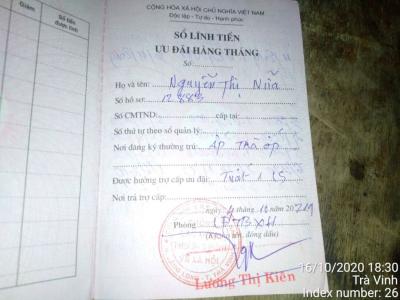 Giảm
Số tiền
được lĩnh
CỘNG HÒA XÃ HỘI CHỦ NGHĨA VIỆT NAM
Độc lập - Tự do - Hạnh phúc
SỔ LĨNH TIỀN
ƯU ĐÃI HÀNG THÁNG
Số:
Họ và tên: Nguyễn Thị Nữa
Số hồ sơ: 12.883
Số CMTND: cấp tại:
Số thứ tự theo sổ quản lý:
Nơi đăng ký thường trú: ấp Trà ốp
Được hưởng trợ cấp ưu đãi: 1 LS
Nơi trả trợ cấp:
ngày tháng 10 năm
Phòng LĐTBXH
(Ký, ghi rõ họ tên, đóng dấu)
VÀ XÃ HỘI
Lương Thị Kiên
16/10/2020 18:30
Trà Vinh
Index number: 26